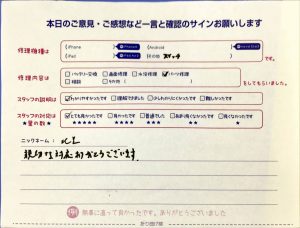 本日のご意見・ご感想など一言と確認のサインお願いします
修理機種は
iPhone
Android
iPad
その他
です。
修理内容は
バッテリー交換 画面修理 水没修理 パーツ修理
相談 その他
をしてもらいました。
スタッフの説明は
わかりやすかったです 理解できました 少しわかりにくかったです 難しかったです
スタッフの対応は
★星の数★
とても良かったです 良かったです 普通でした あまり良くなかったです 良くなかったです
★★★★★ ★★★★ ★★★ ★★ ★
ニックネーム:
親切な対応ありがとうございます
無事に直って良かったです。ありがとうございました